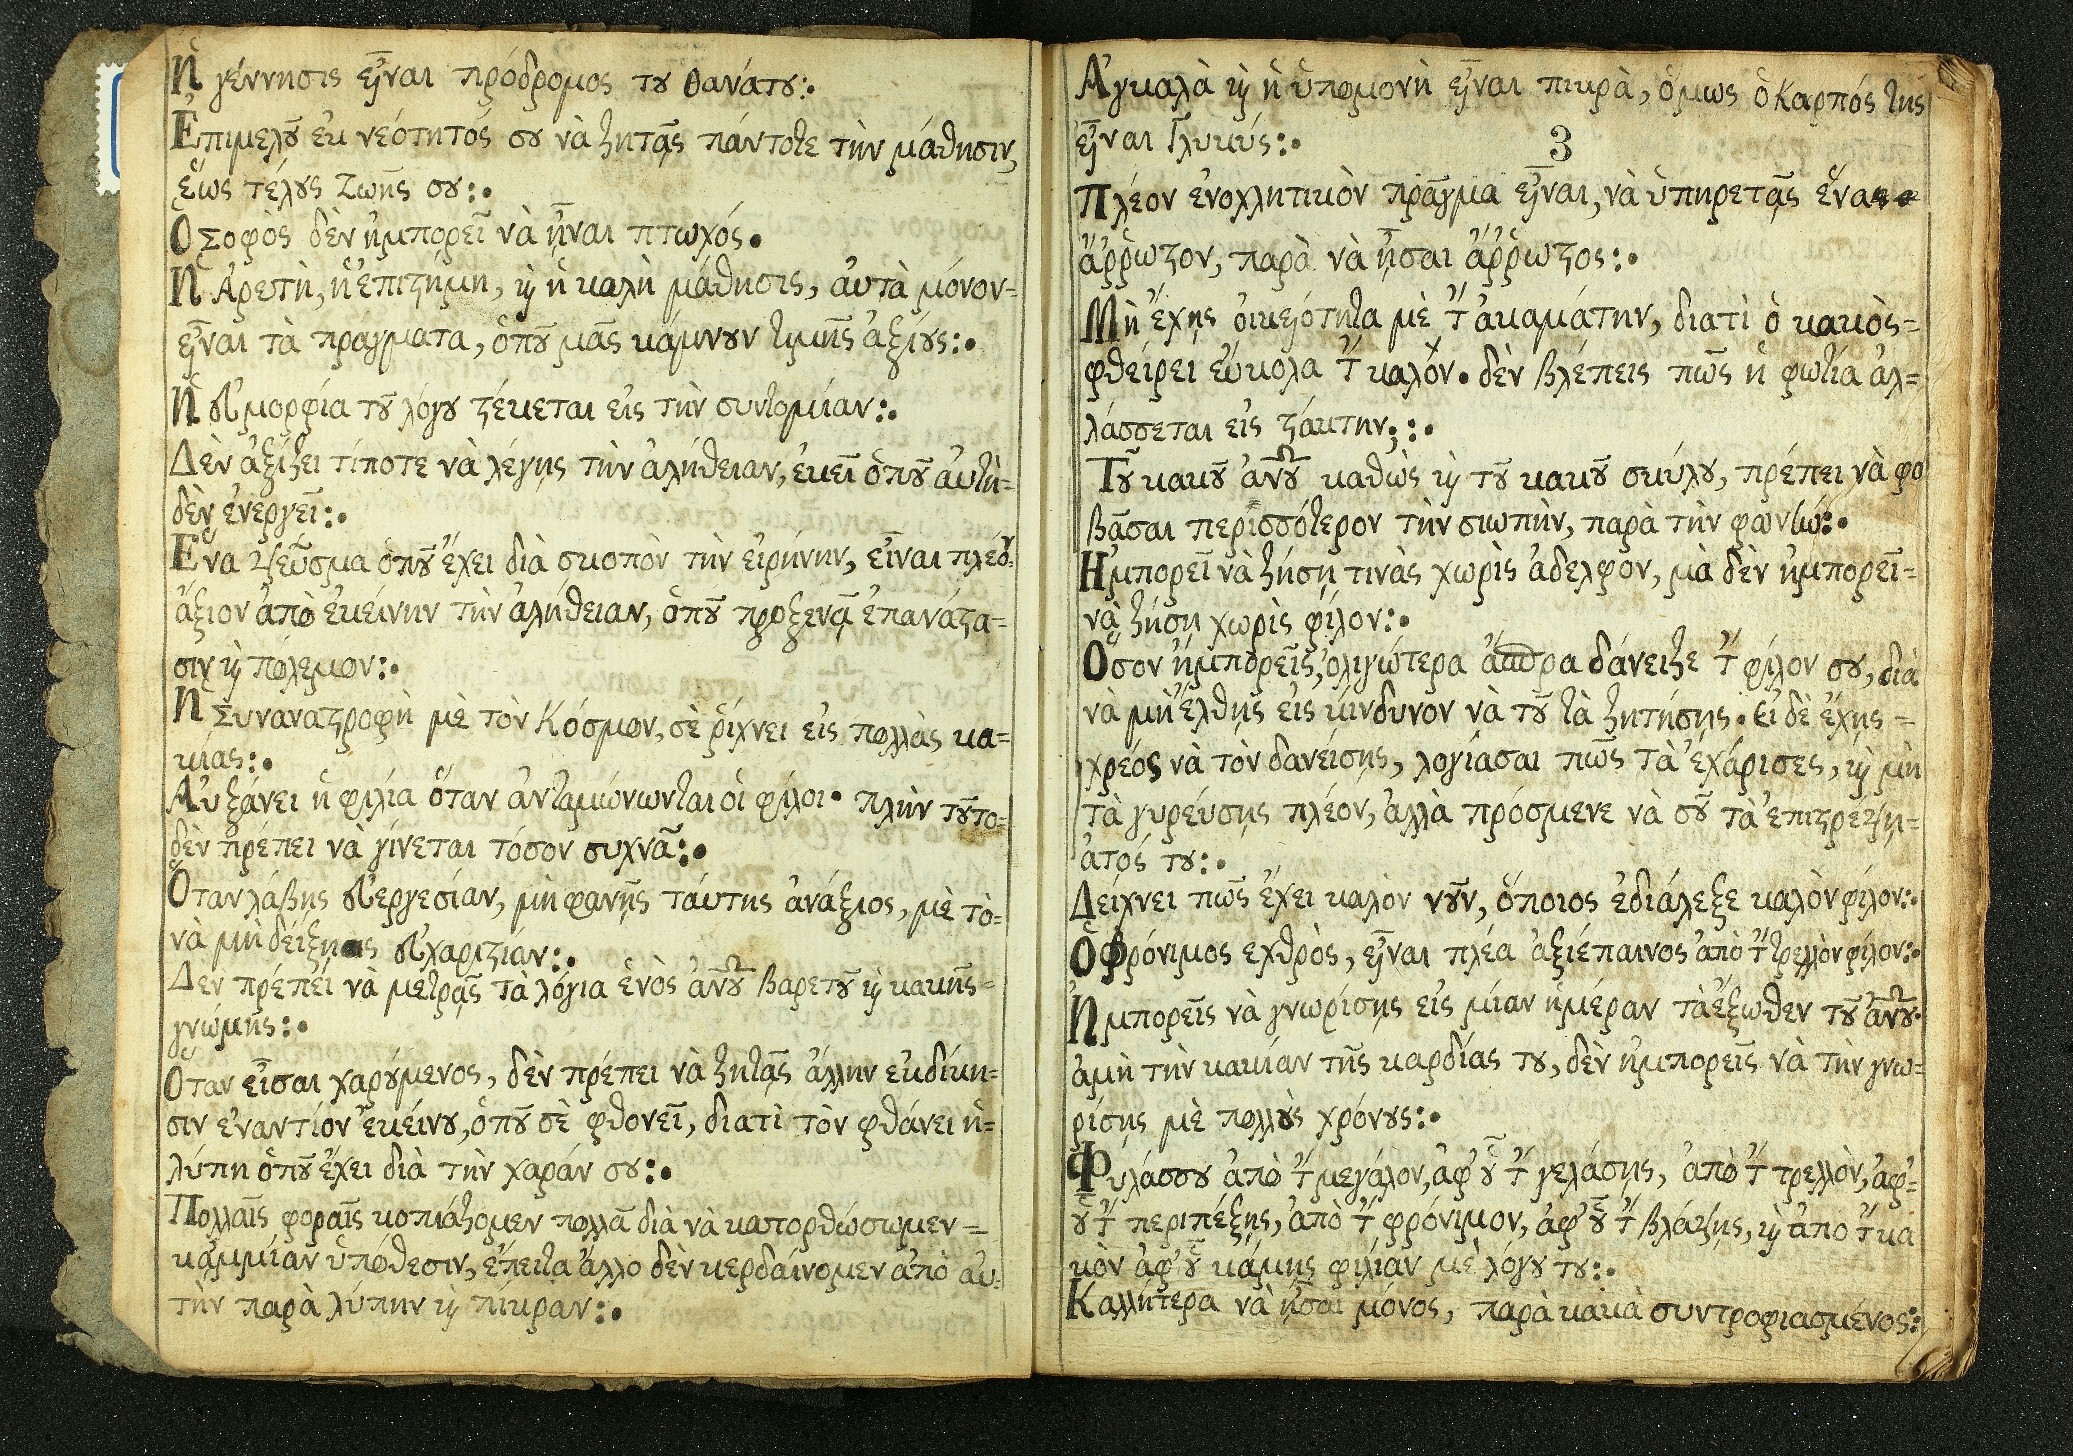 Ἡ γέννησις εἶναι πρόδρομος τȣ θανάτȣ:•
Ἐπιμελοῦ ἐκ νεότητός σȣ νὰ ζητᾷς πάντοτε τὴν μάθησιν,
ἕως τέλȣς ζωῆς σȣ:•
Ὁ Σοφὸς δὲν ἠμπορεῖ νὰ ᾖναι πτωχός•
Ἡ Ἀρετὴ, ἡ ἐπιϛήμη, ϗ ἡ καλὴ μάθησις, ἀυτὰ μόνον=
εἶναι τὰ πράγματα, ὁπȣ͂ μᾶς κάμνȣν τιμῆς ἀξίȣς:•
Ἡ ἐυμορφία τȣ͂ λόγȣ ϛέκεται εἰς τὴν συντομίαν:•
Δὲν ἀξίζει τίποτε νὰ λέγῃς τὴν ἀλήθειαν, ἐκεῖ ὁπȣ͂ ἀυτὴ=
δὲν ἐνεργεῖ:•
Ἕνα ψεῦσμα ὁπȣ͂ ἔχει διὰ σκοπὸν τὴν εἰρήνην, εἶναι πλέον
ἄξιον ἀπὸ ἐκείνην τὴν ἀλήθειαν, ὁπȣ͂ προξενᾷ ἐπανάϛα=
σιν ϗ πόλεμον:•
Ἡ Συναναϛροφὴ μὲ τὸν Κόσμον, σὲ ῥίχνει εἰς πολλὰς κα=
κίας:•
Αὐξάνει ἡ φιλία ὅταν ἀνταμώνωνται οἱ φίλοι• πλὴν τȣ͂το=
δὲν πρέπει νὰ γίνεται τόσον συχνᾶ:•
Ὅταν λάβῃς ἐυεργεσίαν, μὴ φανῇς τάυτης ἀνάξιος, μὲ τὸ=
νὰ μὴ δείξῃς ἐυχαριϛίαν:•
Δὲν πρέπει νὰ μετρᾷς τὰ λόγια ἑνὸς ἀν͞ȣ βαρετȣ͂ ϗ κακῆς=
γνώμης:•
Ὅταν εἶσαι χαρȣ́μενος, δὲν πρέπει νὰ ζητᾷς ἄλλην ἐκδίκη=
σιν ἐναντίον ἐκείνȣ, ὁπȣ͂ σὲ φθονεῖ, διατὶ τὸν φθάνει ἡ=
λύπη ὁπȣ͂ ἔχει διὰ τὴν χαράν σȣ:•
Πολλαῖς φοραῖς κοπιάζομεν πολλᾶ διὰ νὰ κατορθώσωμεν=
κάμμίαν ὑπόθεσιν, ἔπειτα ἄλλο δὲν κερδαίνομεν ἀπὸ ἀυ=
τὴν παρὰ λύπην ϗ πίκραν:•
Ἀγκαλὰ ϗ ἡ ὑπομονὴ εἶναι πικρὰ, ὅμως ὁ Καρπός της
εἶναι Γλυκύς:•
3
Πλέον ἐνοχλητικὸν πρᾶγμα εἶναι, νὰ ὑπηρετᾷς ἕνα
ἄῤῥωϛον, παρὰ νὰ ᾖσαι ἄῤῥωϛος:•
Μὴ ἔχῃς οἰκειότητα μὲ τ̀ ἀκαμάτην, διατὶ ὁ κακὸς=
φθείρει εὔκολα τ̀ καλόν• δὲν βλέπεις πῶς ἡ φωτία ἀλ=
λάσσεται εἰς ϛάκτην;:•
Τȣ͂ κακȣ͂ ἀν͞ȣ καθὼς ϗ τȣ͂ κακȣ͂ σκύλȣ, πρέπει νὰ φο
βᾶσαι περισσότερον τὴν σιωπὴν, παρὰ τὴν φωνήν:•
Ἠμπορεῖ νὰ ζήσῃ τινὰς χωρὶς ἀδελφὸν, μὰ δὲν ἠμπορεῖ=
νὰ ζήσῃ χωρὶς φίλον:•
Ὅσον ἠμπορεῖς, ὀλιγώτερα ἄσπρα δάνειζε τ̀ φίλον σȣ, διὰ
νὰ μὴ ἔλθῃς εἰς κίνδυνον νὰ τȣ͂ τὰ ζητήσῃς• εἰ δὲ ἔχῃς=
χρέος νὰ τὸν δανείσῃς, λογίασαι πῶς τὰ ἐχάρισες, ϗ μὴ
τὰ γυρέυσῃς πλέον, ἀλλὰ πρόσμενε νὰ σȣ͂ τὰ ἐπιϛρέψῃ=
ἀτός τȣ:•
Δείχνει πῶς ἔχει καλὸν νȣ͂ν, ὅποιος ἐδιάλεξε καλὸν φίλον:•
Ὁ φρόνιμος ἐχθρὸς, εἶναι πλέα ἀξιέπαινος ἀπὸ τ̀ τρελλὸν φίλον:•
Ἠμπορεῖς νὰ γνωρίσῃς εἰς μίαν ἡμέραν τὰ ἔξωθεν τȣ͂ ἀν͞ȣ•
ἀμὴ τὴν κακίαν τῆς καρδίας τȣ, δὲν ἠμπορεῖς νὰ τὴν γνω=
ρίσῃς μὲ πολλȣ̀ς χρόνȣς:•
Φυλάσσȣ ἀπὸ τ̀ μεγάλον, ἀφ' ȣ͗͂ τ̀ γελάσῃς, ἀπὸ τ̀ τρελλὸν, ἀφ'=
ȣ͗͂ τ̀ περιπέξῃς, ἀπὸ τ̀ φρόνιμον, ἀφ' ȣ͗͂ τ̀ βλάψῃς, ϗ ἀπὸ τ̀ κα
κὸν ἀφ' ȣ͗͂ κάμῃς φιλίαν μὲ λόγȣ τȣ:•
Καλλήτερα νὰ ᾖσαι μόνος, παρὰ κακὰ συντροφιασμένος:•